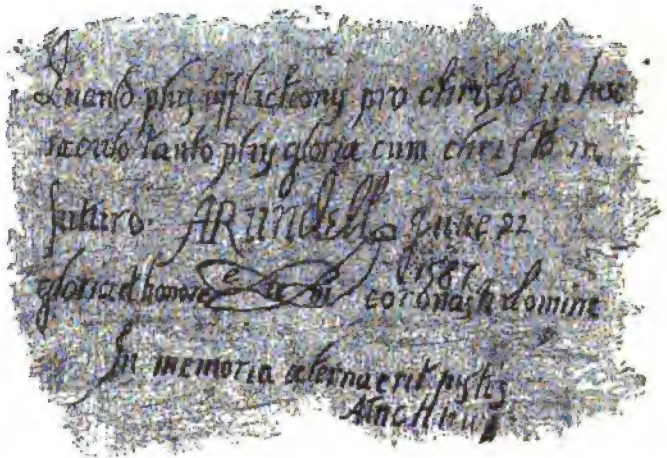 Quanto plus afflictionis pro christo in hoc
saeculo tanto plus gloriæ cum christo in
futuro · ARundell June 22
1587
gloria et honore eum coronasti domine
In memoria æterna erit justus